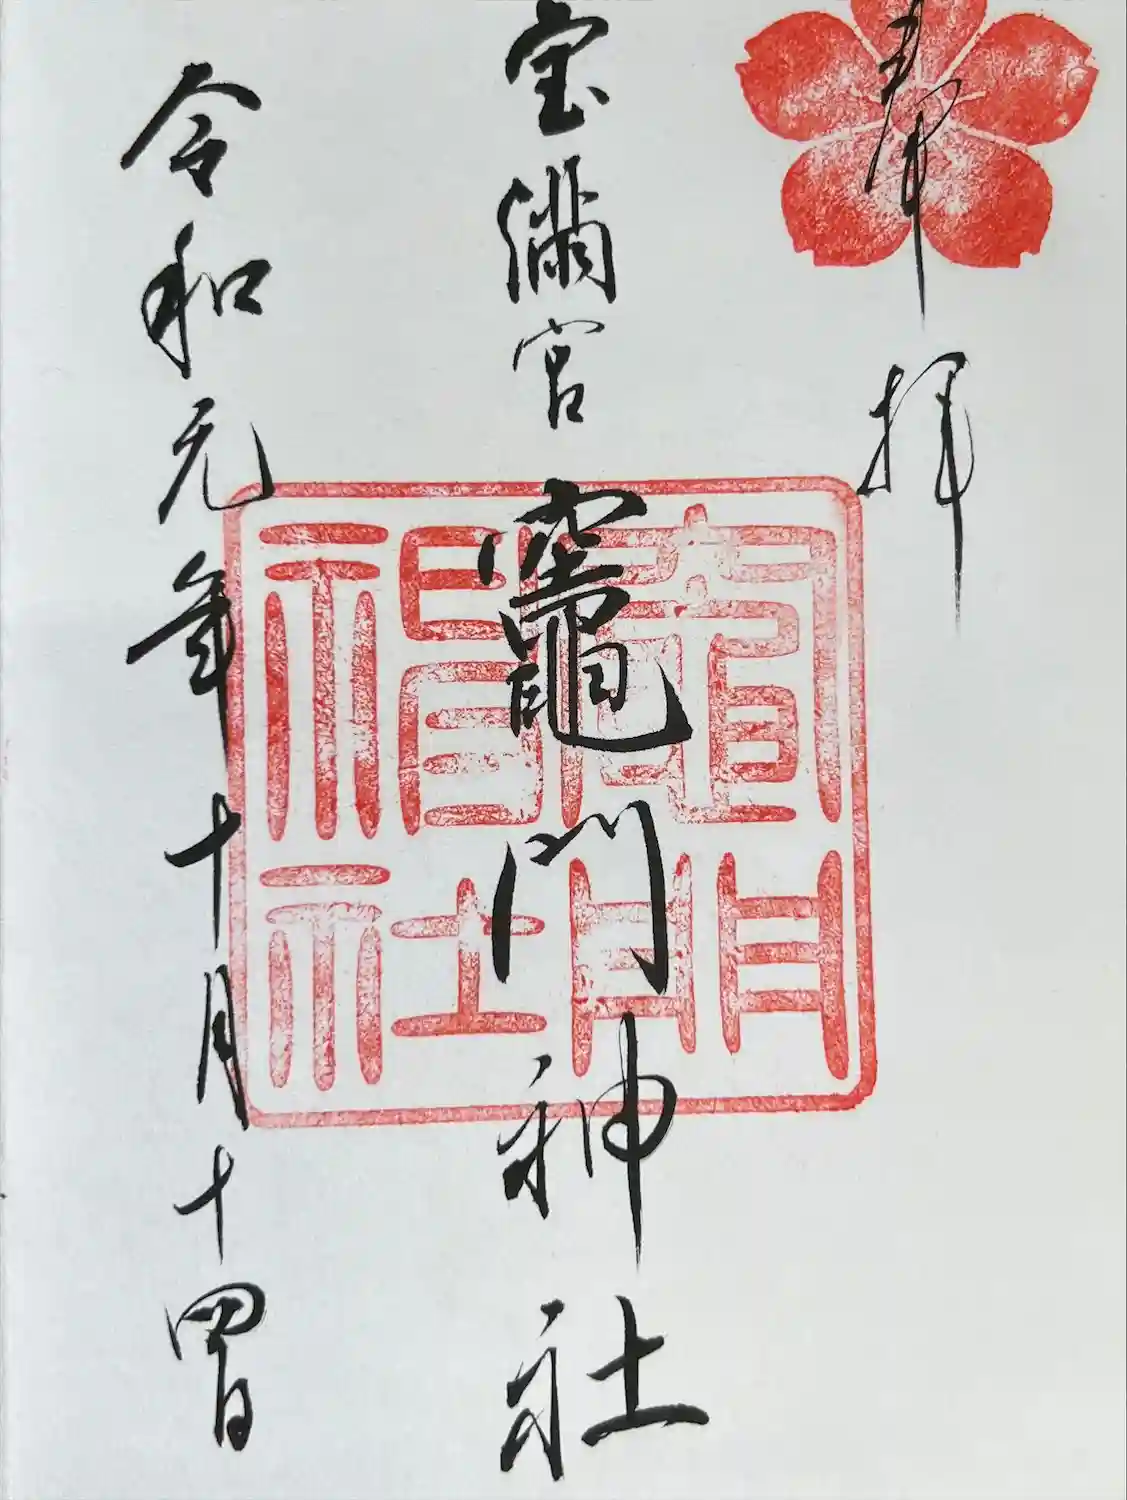 奉拝
宝満宮 竈門神社
令和元年十月十四日
竈門
神社